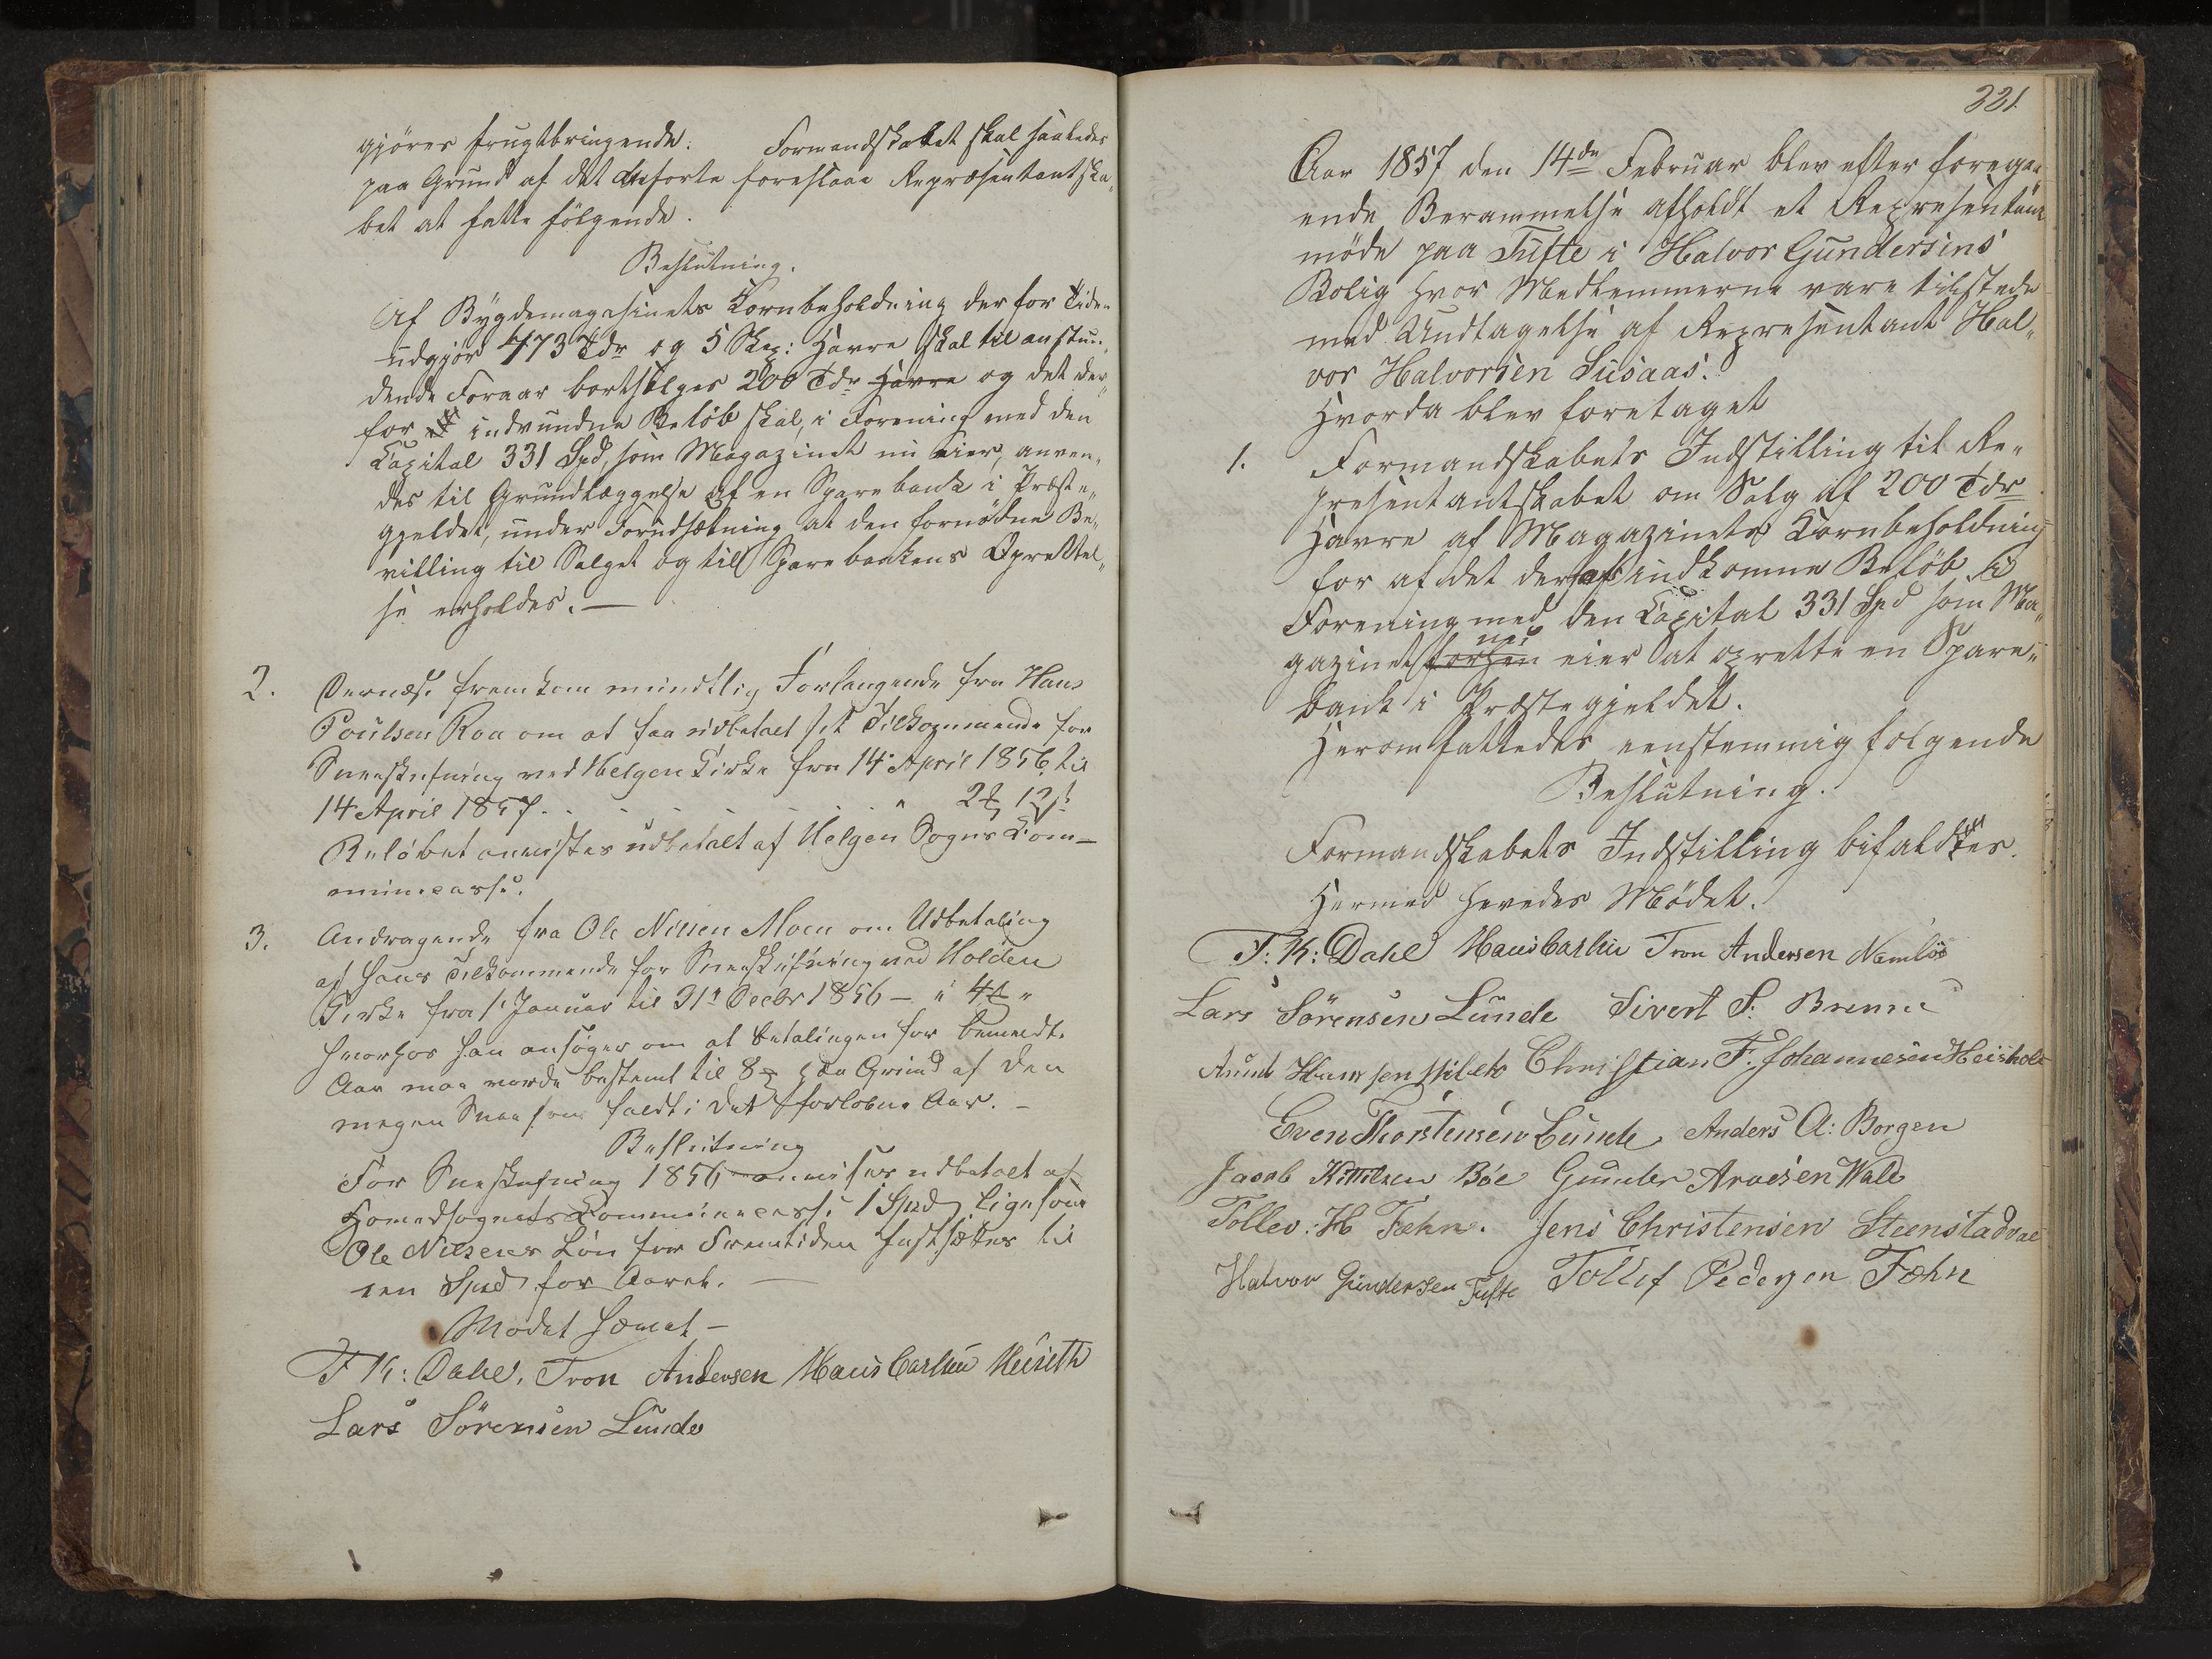 gjöres frugtbringende. Formandskabet skal saaledes
paa Grund af det anforte foreslaae Repræsentantska„
bet at fatte fölgende.
Beslutning.
Af Bygdemagasinets Kornbeholdning der for Tiden
udgjör 473 Tdr og 5 Skp: Havre skal til anstun„
dende Foraar bortsælges 200 Tdr Havre og det der„
for indvundne Belöb skal, i Forening med den
Capital 331 Spd, som Magazinet nu eier, anven„
des til Grundlæggelse af en Sparebank i Præste„
gjeldet, under Forudsætning at den fornödne Be„
villing til Salget og til Sparebankens Oprettel„
se erholdes. —
2. Dernæst fremkom mundtlig Forlangende fra Hans
Poulsen Roa om at faa udbetalt sit Tilkommende for
Sneeskufning ved Helgen Kirke fra 14 April 1856 til
14 April 1857 . . . . . . " 2 12
Belöbet anvistes udbetalt af Helgen Sogns Com-
munecasse.
3. Andragende fra Ole Nilsen Moen om Udbetaling
af hans Tilkommende for Sneeskufning ved Holden
Kirke fra 1 Januar til 31te Decbr 1856 — " 4 "
hvorhos han ansöger om at Betalingen for bemeldte
Aar maa vorde bestemt til 8 paa Grund af den
megen Snee som faldt i det forlobne Aar. —
Beslutning
For Sneskufning 1856 anvises udbetalt af
Hovedsognets Communecasse 1 Spd, ligesom
Ole Nilsens Lön for Fremtiden fastsættes til
een Spd for Aaret. —
Modet hævet —
F K: Dahl. Tron Andersen Hans Carlsen Heiseth
Lars Sörensen Lunde
331.
Aar 1857 den 14de Februar blev efter forega„
ende Berammelse afholdt et Representant
möde paa Tufte i Halvor Gundersens
Bolig hvor Medlemmerne vare tilstede
med Undtagelse af Representant Hal„
vor Halvorsen Susaas.
Hvorda blev foretaget
1. Formandskabets Indstilling til Re„
presentantskabet om Salg af 200 Tdr
Havre af Magazinets Kornbeholdning
for af det deraf indkomne Belöb i
Forening med den Capital 331 Spd som Ma„
gazinet forhen nu eier at oprette en Spare„
bank i Præstegjeldet.
Herom fattedes eenstemmig følgende
Beslutning.
Formandskabets Indstilling bifaldtes.
Hermed hævedes Mödet.
F: K: Dahl Hans Carlsen Tron Andersen Namlös
Lars Sörensen Lunde Sivert S: Brenne
Hansen Christian F. Johannesen Heisholt
Even Thorstensen Lunde, Anders A: Borgen
Jacob Kittilsen Böe Gunder Aroesen Wale
Tollev: H Fæhn. Jens Christensen Steenstadvae
Halvor Gundersen Tufte Tollef Pedersen Fæhn